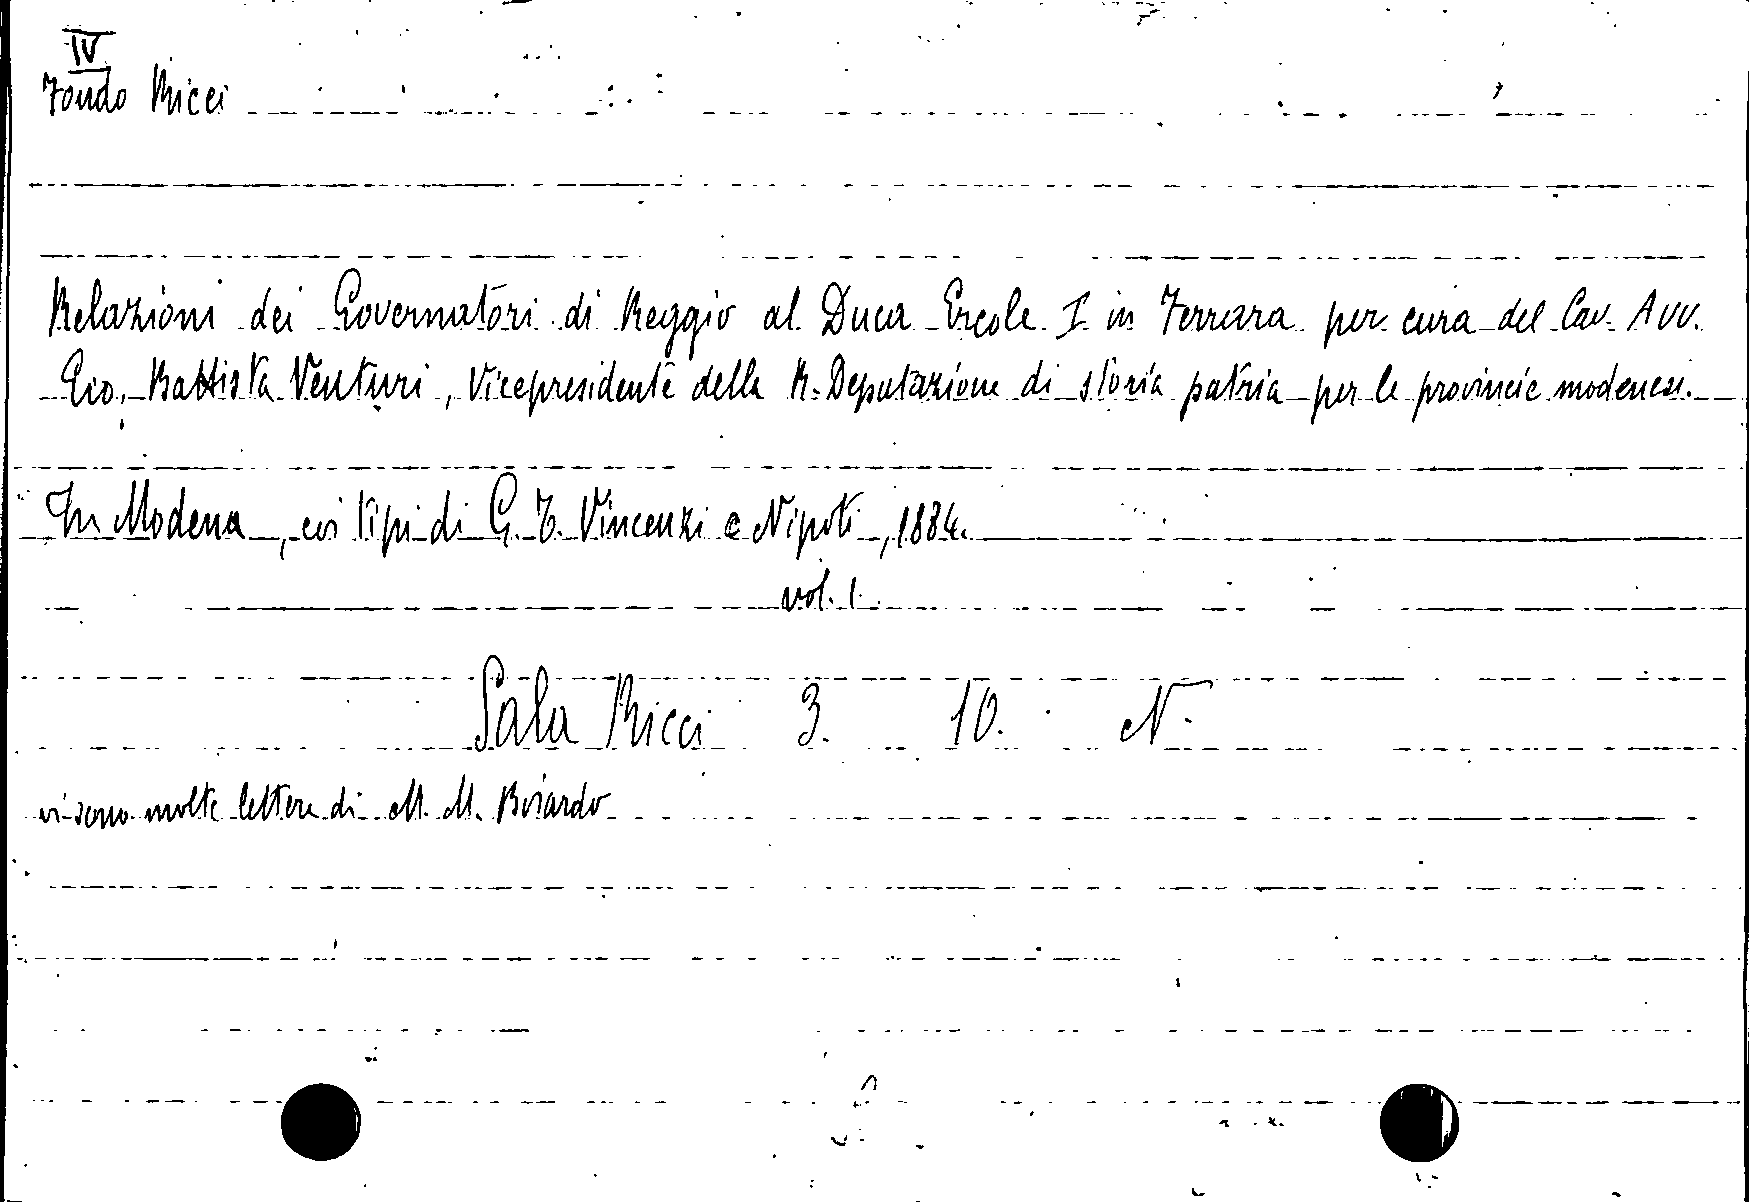 IV
Fondo Ricci
Relazioni dei Governatori di Reggio al Duca Ercole I in Ferrara per cura del Cav. Avv.
Gio. Battista Venturi, Vicepresidente della R. Deputazione di storia patria per le provincie modenesi.
In Modena, coi tipi di G. T. Vincenzi e Nipoti, 1884.
vol. 1.
Sala Ricci 3. 10. N.
vi sono molte lettere di M. M. Boiardo